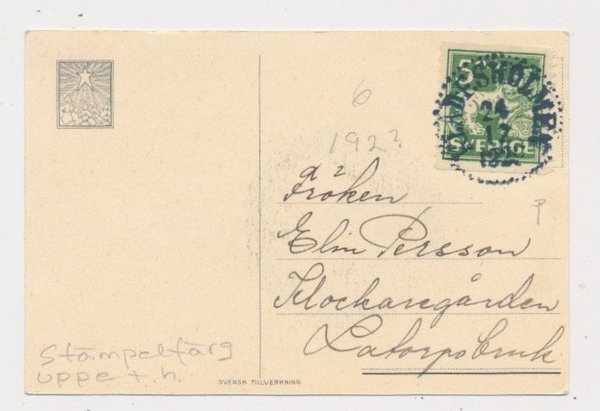 5
SVERIGE
24
12
6
192?
Fröken
Elin Persson
Klockaregården
Latorpsbruk
Stämpelfärg
uppe t.h.
SVENSK TILLVERKNING